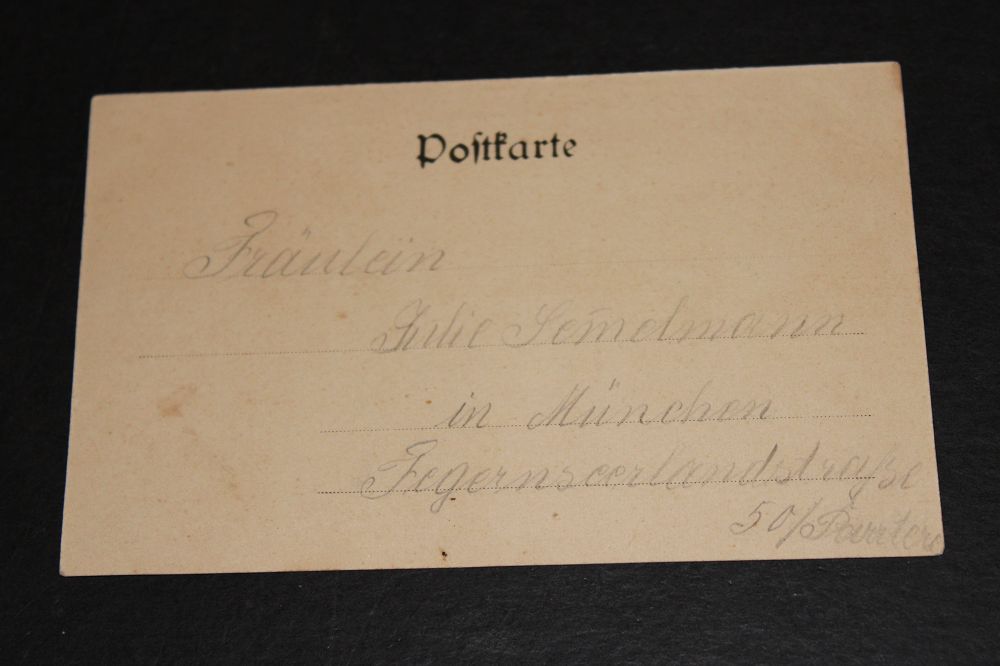 Postkarte
Fräulein
Julie Sem̄elmann
in München
Tegernseerlandstraße
50/Parterre